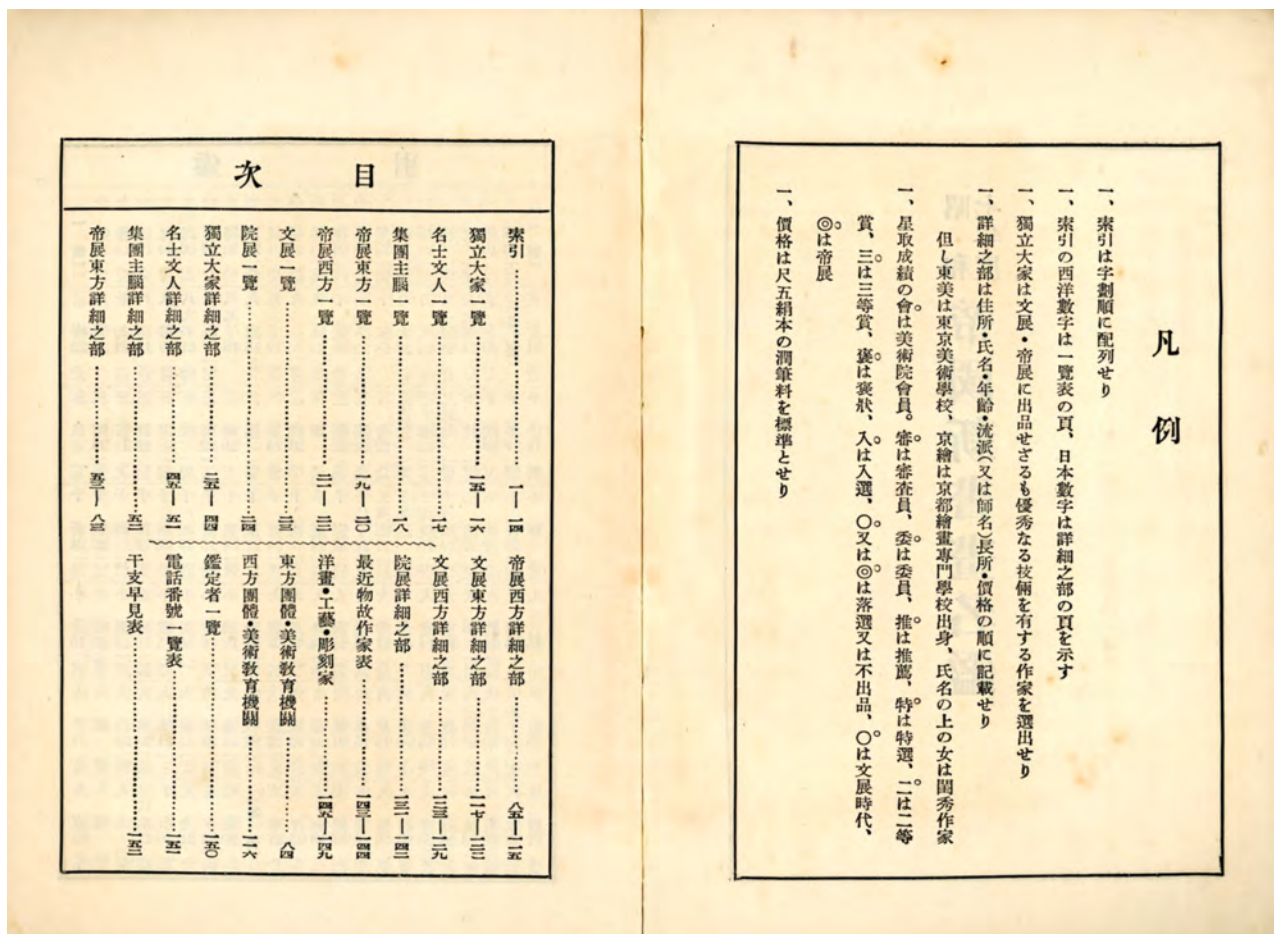 凡例
一、索引は字劃順に配列せり
一、索引の西洋數字は一覽表の頁、日本數字は詳細之部の頁を示す
一、獨立大家は文展・帝展に出品せざるも優秀なる技倆を有する作家を選出せり
一、詳細之部は住所・氏名・年齡・流派(又は師名)長所・價格の順に記載せり
但し東美は東京美術學校、京繪は京都繪畫專門學校出身、氏名の上の女は閨秀作家
一、星取成績の會は美術院會員。審は審査員、委は委員、推は推薦、特は特選、二は二等
賞、三は三等賞、褒は褒狀、入は入選、〇又は◎は落選又は不出品、〇は文展時代、
◎は帝展
一、價格は尺五絹本の潤筆料を標準とせり
目次
索引…………一—一四
獨立大家一覽…………一五—一六
名士文人一覽…………一七
集團主腦一覽…………一八
帝展東方一覽…………一九—二〇
帝展西方一覽…………二一—二二
文展一覽…………二三
院展一覽…………二四
獨立大家詳細之部…………二五—四四
名士文人詳細之部…………四五—五一
集團主腦詳細之部…………五二
帝展東方詳細之部…………五三—八三
帝展西方詳細之部…………八五—一一五
文展東方詳細之部…………一一七—一二二
文展西方詳細之部…………一二三—一二九
院展詳細之部…………一三一—一四二
最近物故作家表…………一四三—一四四
洋畫・工藝・彫刻家…………一四五—一四九
東方團體・美術敎育機關…………八四
西方團體・美術敎育機關…………一一六
鑑定者一覽…………一五〇
電話番號一覽表…………一五一
干支早見表…………一五二